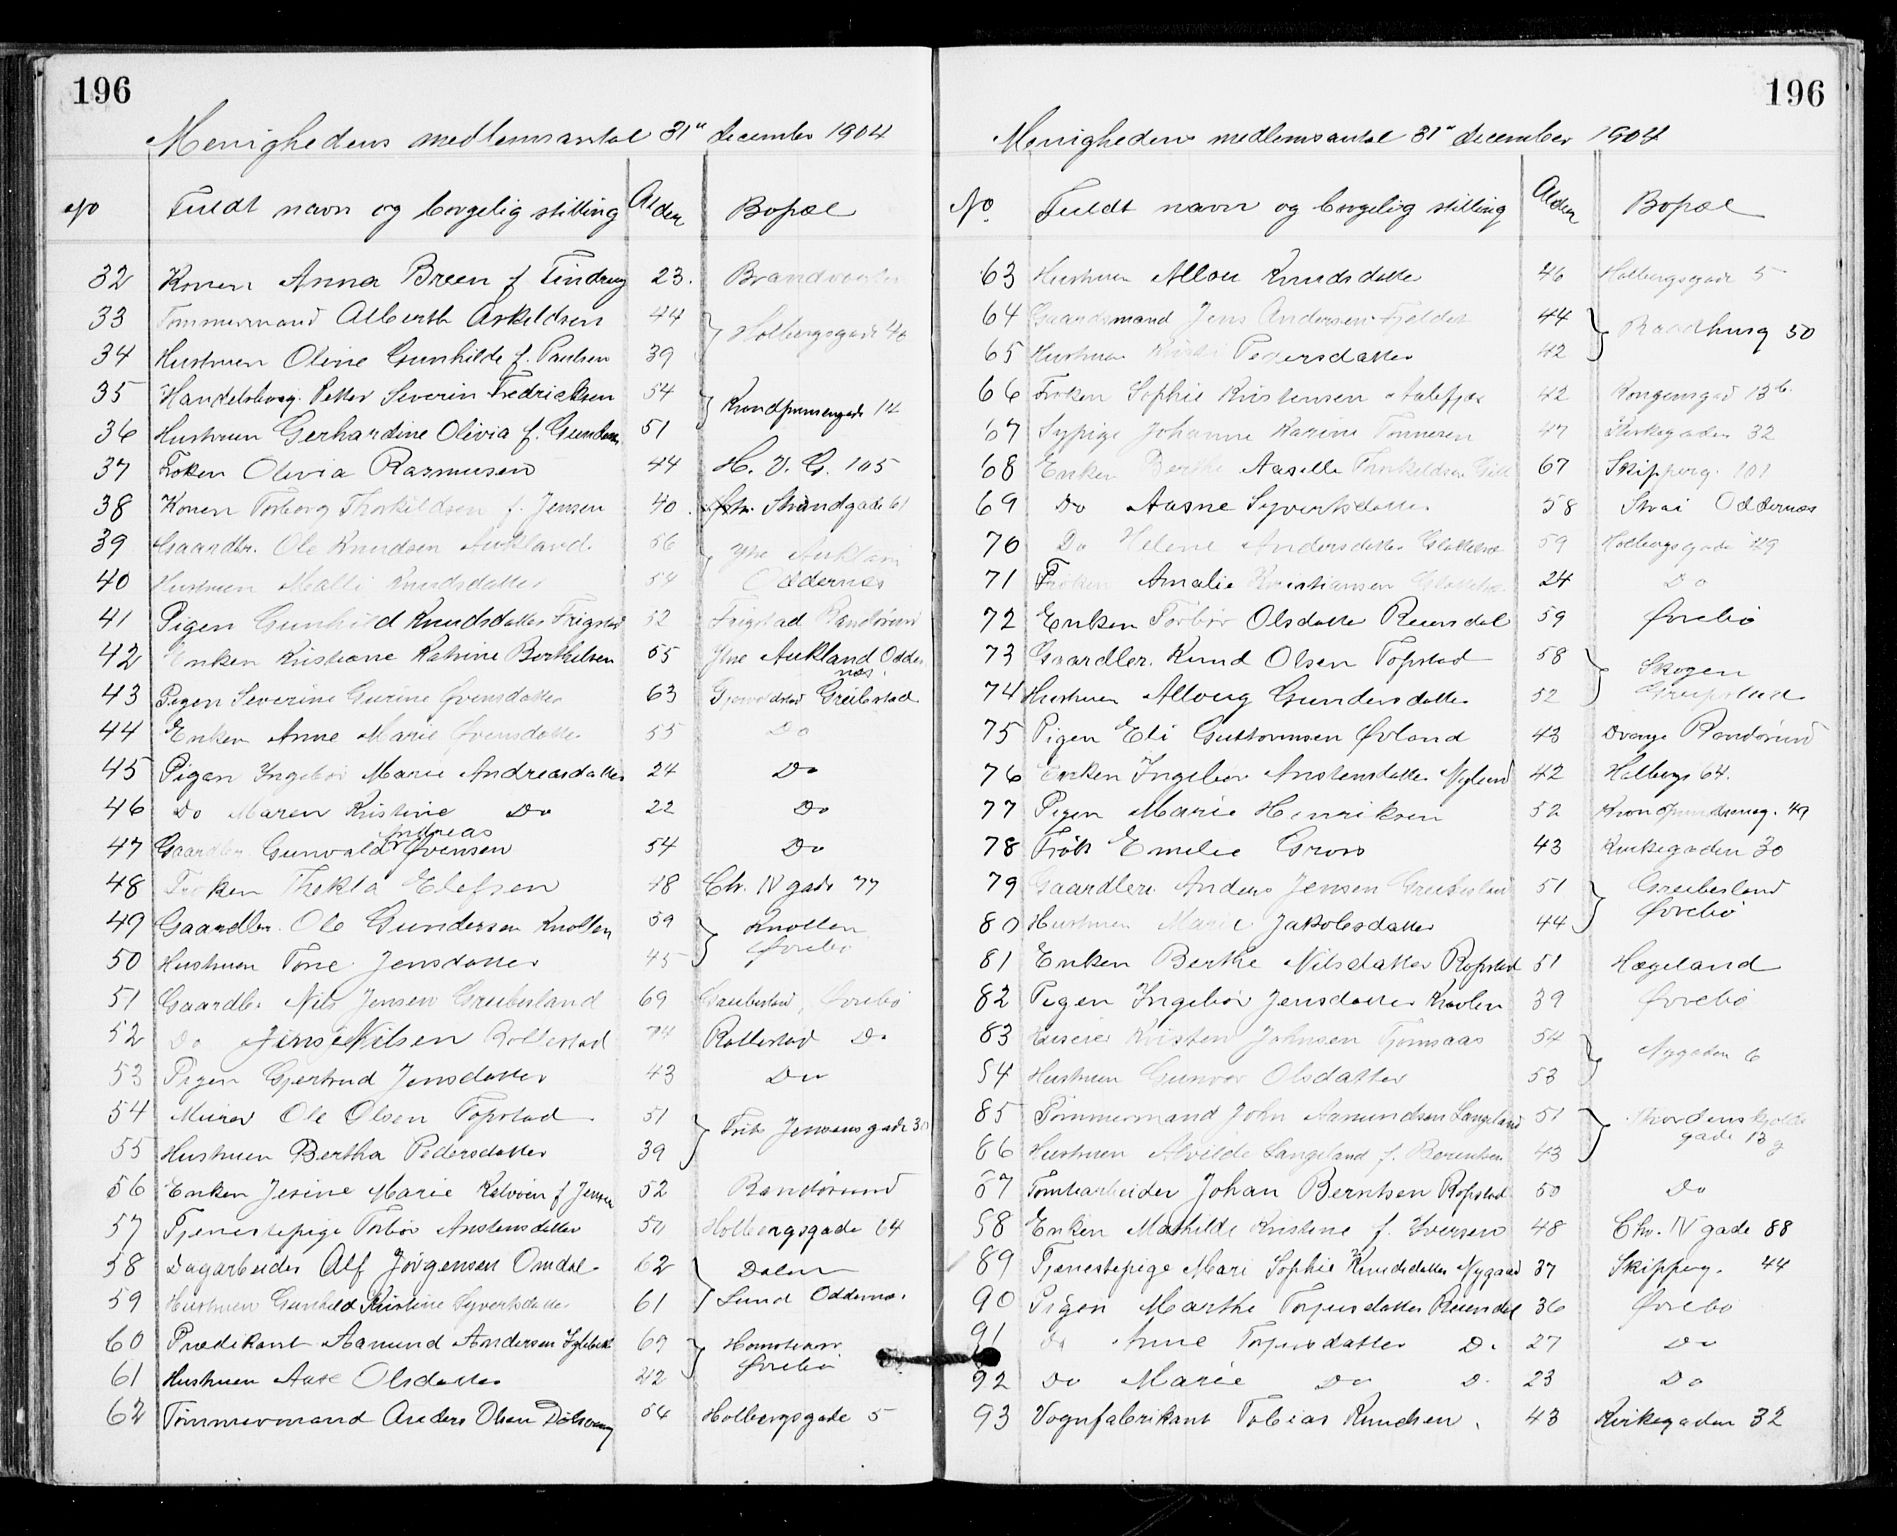 196
Menighedens medlemsantal 31te december 1904
No Fuldt navn og borgelig stilling Alder Bopæl
32 Konen Anna Breen f Tindrug 23. Brandvagten
33 Tømmermand Alberth Askildsen 44 Holbergsgade 40
34 Hustruen Oline Gunhilde f. Paulsen 39
35 Handelsborg. Petter Severin Fredricksen 54 Krondprinsengade 14
36 Hustruen Gerhardine Olivia f. Gunders. 51
37 Frøken Olivia Rasmusen 44 H. V. G. 105
38 Konen Torborg Thorkildsen f. Jensen 40. Str. Strandgade 61
39 Gaardbr. Ole Knudsen Aukland 56 Ytre Aukland
40 Hustruen Malli Knudsdatter 54 Oddernes
41 Pigen Gunhild Knudsdatter Frigstad 52 Frigstad Randøsund
42 Enken Kristiane Katrine Berthelsen 55 Ytre Aukland Odder
nes.
43 Pigen Severine Gurine Øvensdatter 63 Greibestad
44 Enken Anne Marie Øvensdatter 55 Do
45 Pigen Ingebør Marie Andreasdatter 24 Do
46 Do Maren Kristine Do 22 Do
Andreas
47 Gaardbr Gunvald Øvensen 54 Do
48 Frøken Thekla Elefsen 48 Chr. IV gade 77
49 Gaardbr. Ole Gundersen Knollen 59 Knollen
50 Hustruen Tone Jensdatter 45 Øvrebø
51 Gaardbr. Nils Jensen Greibesland 69 Greibesland, Øvrebø
52 Do Jens Nilsen Rollestad 74 Rollestad Do
53 Pigen Gjertrud Jensdatter 43 Do
54 Murer Ole Olsen Topstad 51 Frits Jensens gade 30
55 Hustruen Bertha Pedersdatter 39
56 Enken Jesine Marie Kalvøen f Jensen 52 Randøsund
57 Tjenestepige Torbør Anstensdatter 50 Holbergsgade 64
58 Dagarbeider Alf Jørgensen Omdal 62 Dalen
59 Hustruen Gunhild Kristine Syvertsdatter 61 Lund Oddernes.
60 Prædikant Aamund Andersen 69 Homstean
61 Hustruen Aase Olsdatter 42 Øvrebø
62 Tømmermand Anders Olsen 54 Holbergsgade 5
196
Menighedens medlemsantal 31te december 1904
No. Fuldt navn og borgelig stilling Alder Bopæl
63 Hustruen Allou Knudsdatter 46 Holbergsgade 5
64 Gaardsmand Jens Andersen Fjeldet 44 Raadhusg 50
65 Hustruen Kirsti Pedersdatter 42
66 Frøken Sophie Kristensen Aalefjær 42 Kongensgad 13b.
67 Sypige Johanne Karine Tønnesen 47 Kirkegaden 32
68 Enken Berthe Aaselle Thorkildsen 67 Skipperg. 101
69 Do Aasne Syvertsdatter 58 Strai Oddernes
70 Do Helene Andersdatter 59 Holbergsgade 49
71 Frøken Amalie Kristiansen 24 Do
72 Enken Torbør Olsdatter Reiersdal 59 Øvrebø
73 Gaardbr. Knud Olsen Topstad 58 Skogen
74 Hustruen Alloug Gundersdatter 52 Greipstad
75 Pigen Eli Guttormsen Øvland 43 Dvergs Randøsund
76 Enken Ingebør Anstensdatter Neglend 42 Holbergs 64.
77 Pigen Marie Henriksen 52 Krondprindseng. 49
78 Frøk Emelie Gross 43 Kirkegaden 30
79 Gaardbr. Anders Jensen Greibesland 51 Greibesland
80 Hustruen Marie Jakobsdatter 44 Øvrebø
81 Enken Berthe Nilsdatter Ropstad 51 Hægeland
82 Pigen Ingebør Jensdatter Knolen 39 Øvrebø
83 Huseier Kristen Johnsen Tjomsaas 54 Nygaden 6
84 Hustruen Gunvor Olsdatter 53
85 Tømmermand John Aamundsen Langeland 51 Thordenskjolds
gade 13 g
86 Hustruen Alvilde Langeland f. Berentsen 43
87 Tomtearbeider Johan Berntsen Ropstad 50 Do
88 Enken Mathilde Kristine f. Iversen 48 Chr. IV gade 88
89 Tjenestepige Mari Sophie Knudsdatter Nygaard 37 Skipperg. 44
90 Pigen Marthe Torjusdatter Reiersdal 36 Øvrebø
91 Do Anne Torjusdatter Do 27 Do
92 Do Marie Do Do 23 Do
93 Vognfabrikant Tobias Knudsen. 43 Kirkegaden 32